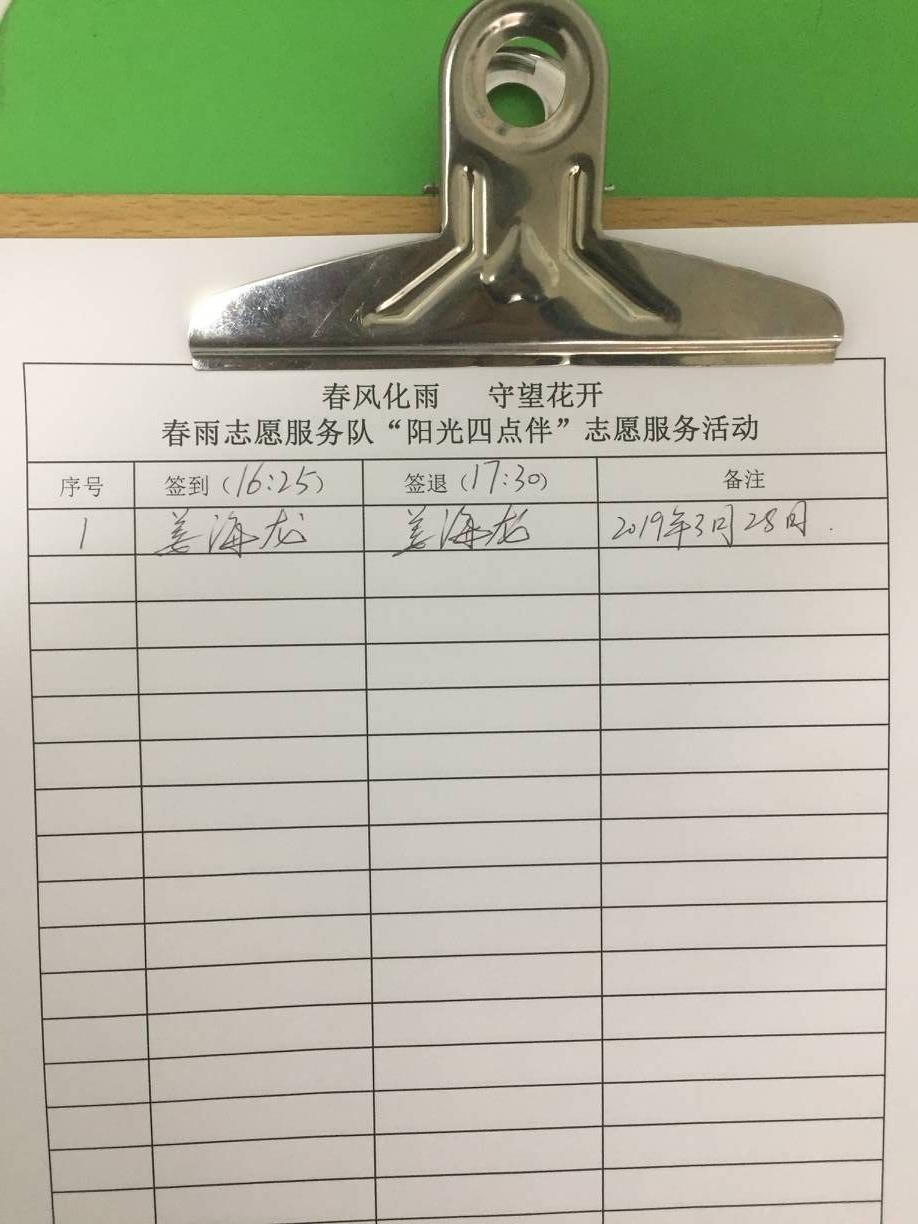 春风化雨 守望花开
春雨志愿服务队“阳光四点伴”志愿服务活动
序号 签到（16:25） 签退（17:30） 备注
1 姜海龙 姜海龙 2019年3月28日.